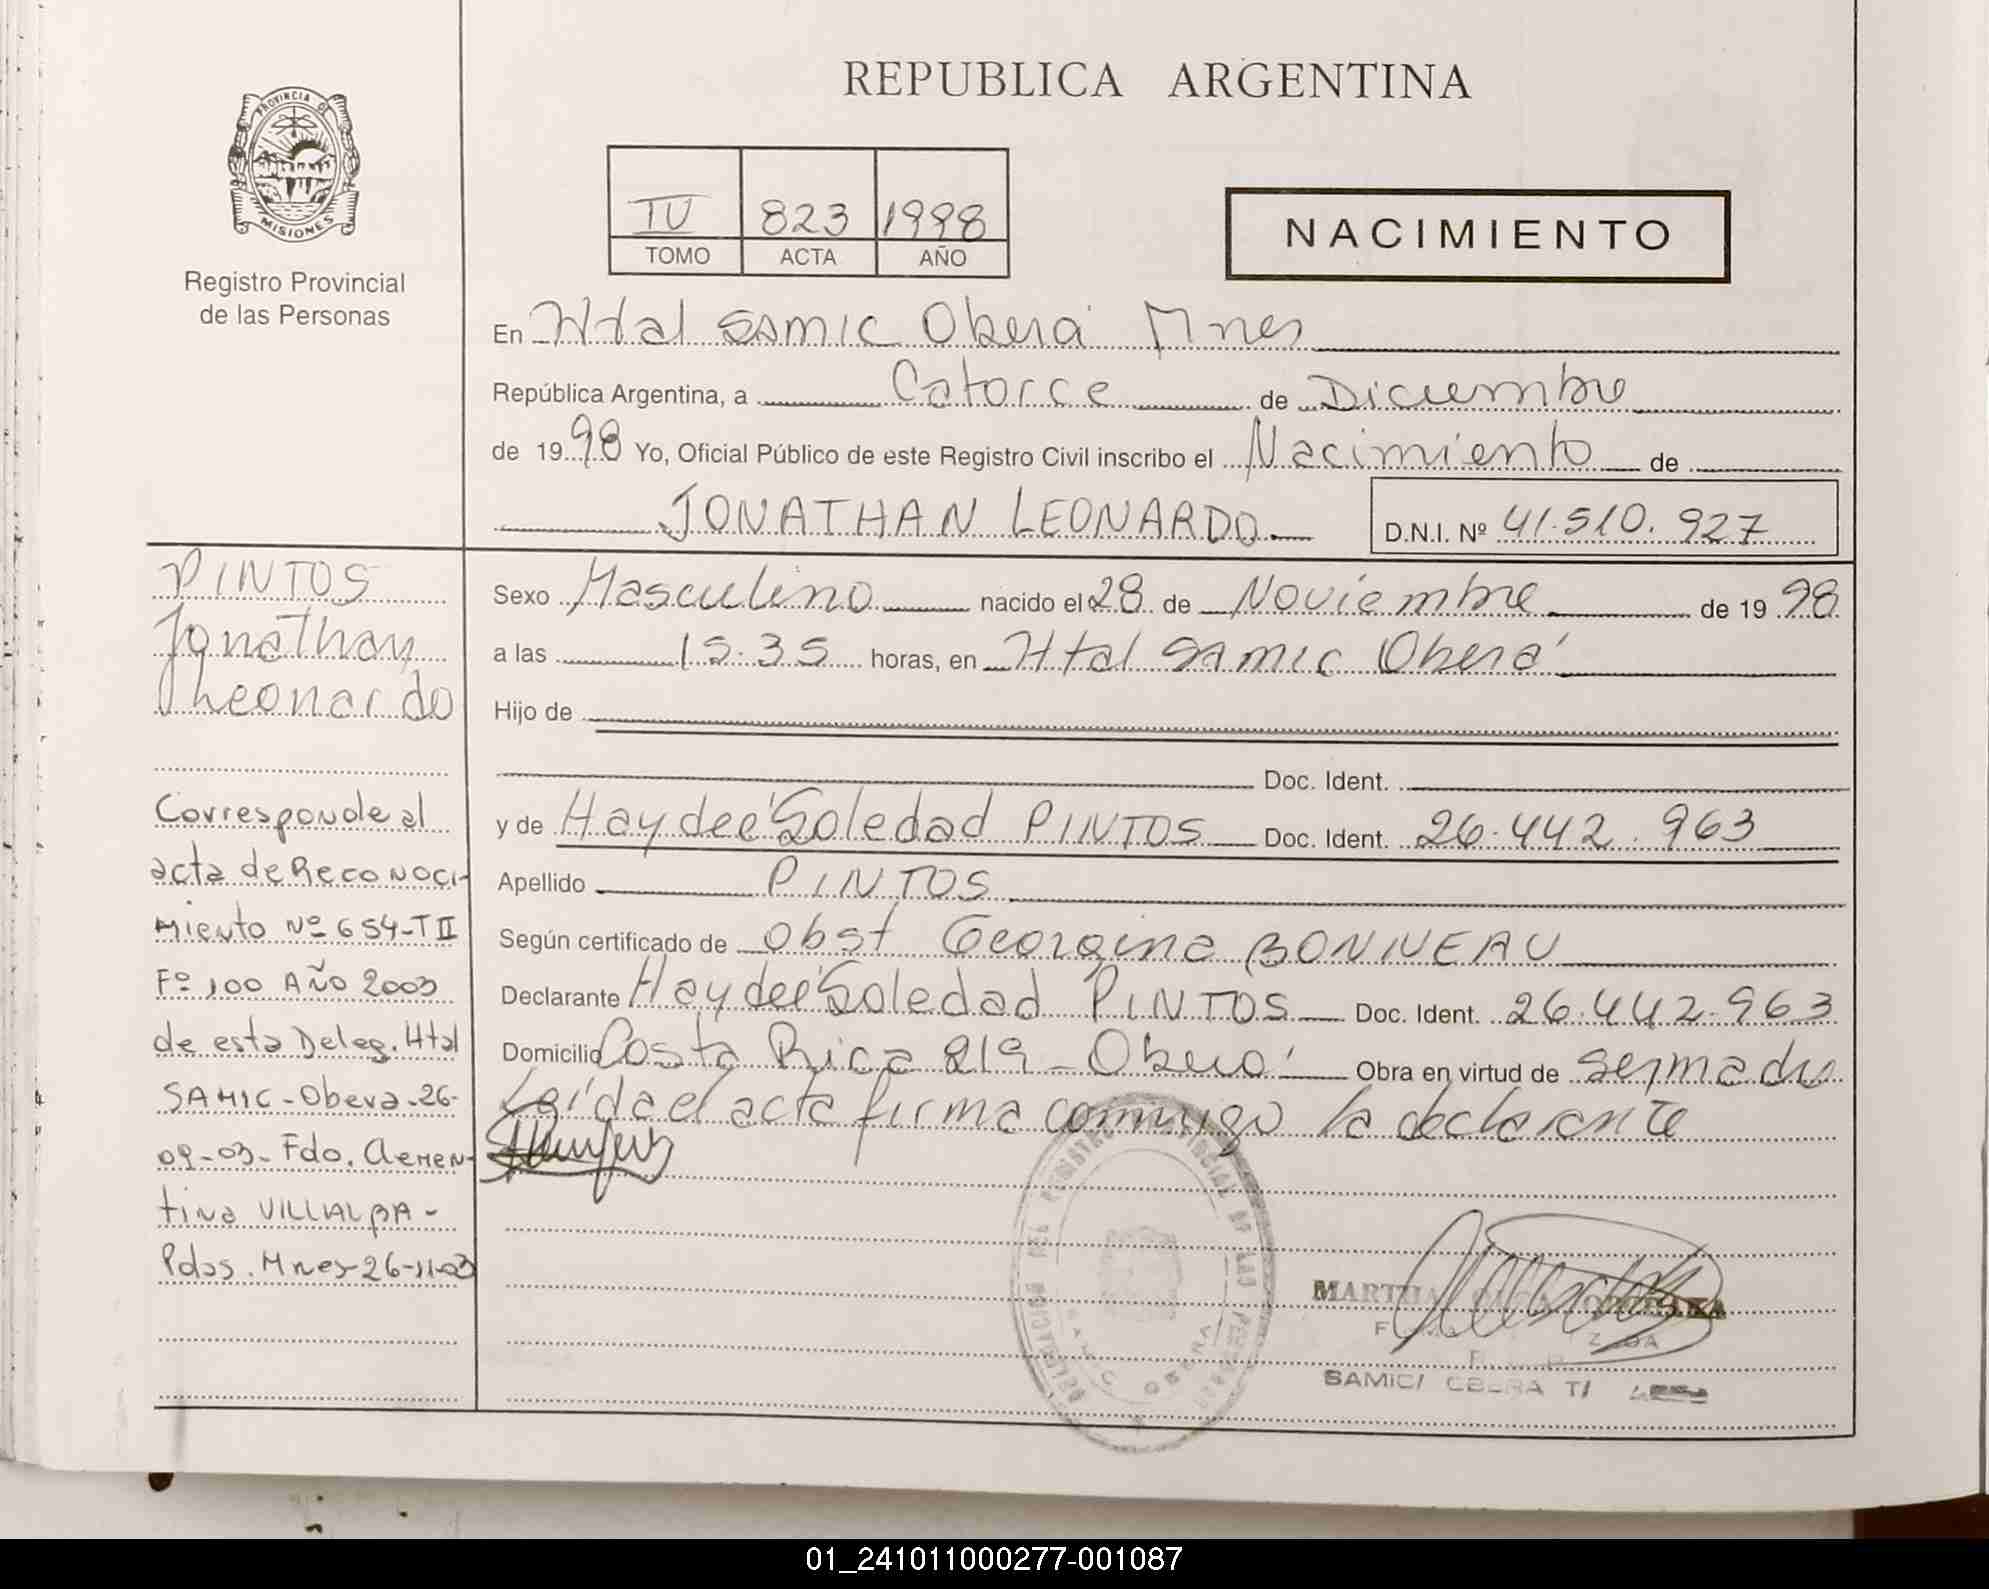 REPUBLICA ARGENTINA
PROVINCIA D
MISIONES
Registro Provincial
de las Personas
IV 823 1998
TOMO ACTA AÑO
NACIMIENTO
En Htal SAMIC Oberá Mnes
República Argentina, a Catorce de Diciembre
de 1998 Yo, Oficial Público de este Registro Civil inscribo el Nacimiento de
JONATHAN LEONARDO D.N.I. Nº 41.510.927
PINTOS
Jonathan
Leonardo
Sexo Masculino nacido el 28 de Noviembre de 1998
a las 15.35 horas, en Htal SAMIC Oberá
Hijo de
Doc. Ident.
y de Haydeé Soledad PINTOS Doc. Ident. 26.442.963
Apellido PINTOS
Según certificado de Obst Georgina BONNEAU
Declarante Haydeé Soledad PINTOS Doc. Ident. 26.442.963
Domicilio Costa Rica 219 - Oberá Obra en virtud de ser madre
Leída el acta firma conmigo la declarante
Corresponde al
acta de Reconoci-
miento Nº 654-TII
Fº 100 AÑO 2003
de esta Deleg. Htal
SAMIC - Obera - 26-
09-03- Fdo. Clemen-
tina VILLALBA -
Pdas. Mnes 26-11-03
DELEGACION DEL REGISTRO PROVINCIAL DE LAS PERSONAS
MARTHA
SAMIC/ OBERA
01_241011000277-001087